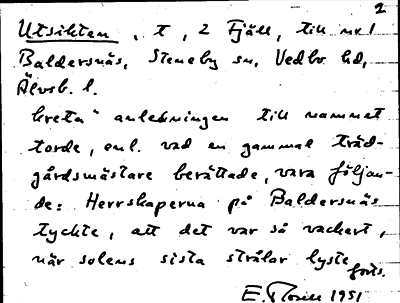 2
Utsikten, t, 2 Fjäll, till nr 1
Baldersnäs, Steneby sn, Vedbo hd,
Älvsb. l.
Kreta" anledningen till namnet
torde, enl. vad en gammal träd-
gårdsmästare berättade, vara följan-
de: Herrskaperna på Baldersnäs
tyckte, att det var så vackert,
när solens sista strålar lyste
forts.
E. 1951